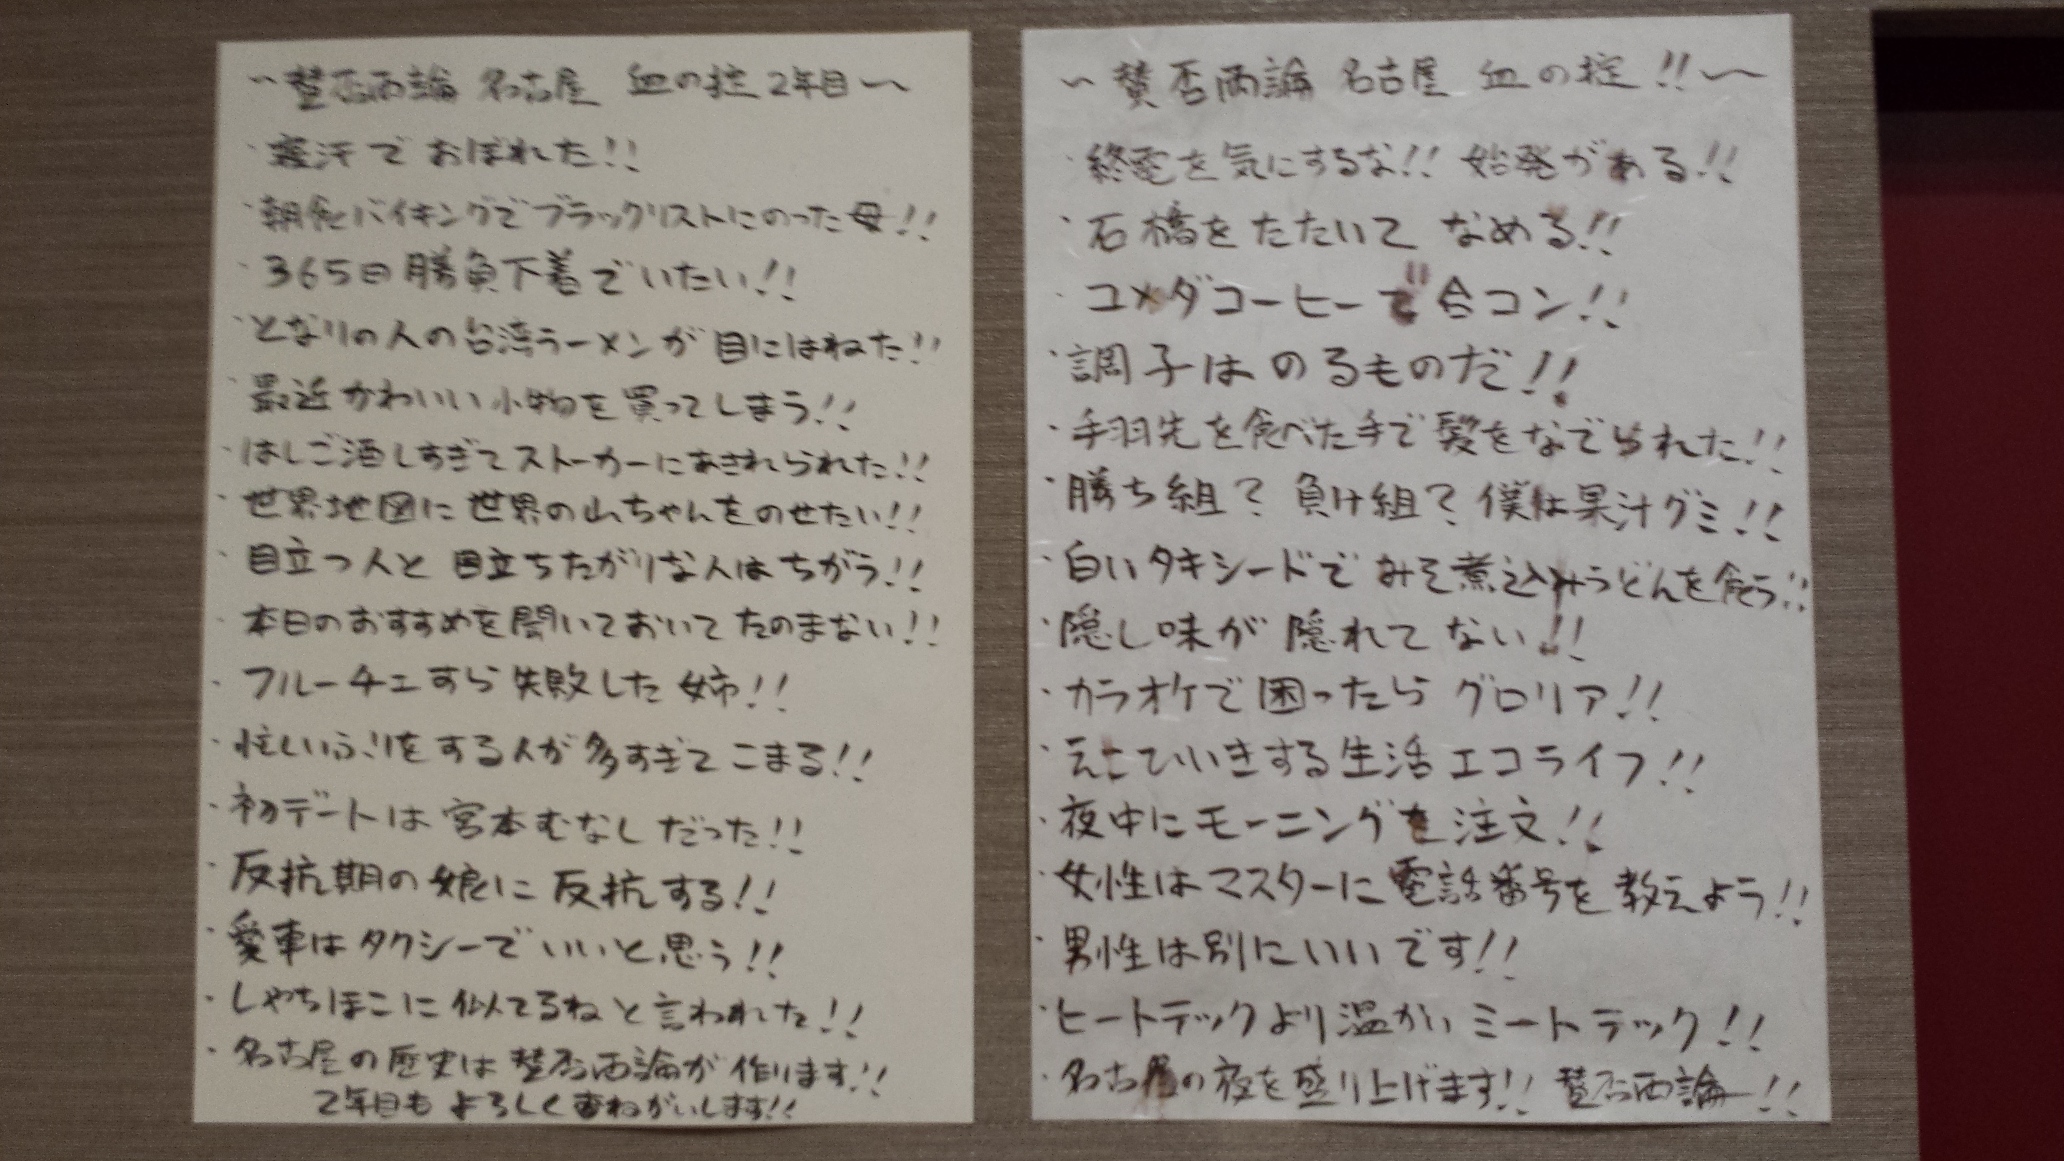 ～賛否両論 名古屋 血の掟2年目～
・寝汗でおぼれた!!
・朝食バイキングでブラックリストにのった母!!
・365日勝負下着でいたい!!
・となりの人の台湾ラーメンが目にはねた!!
・最近かわいい小物を買ってしまう!!
・はしご酒しすぎてストーカーにあきれられた!!
・世界地図に世界の山ちゃんをのせたい!!
・目立つ人と目立ちたがりな人はちがう!!
・本日のおすすめを聞いておいてたのまない!!
・フルーチェすら失敗した姉!!
・忙しいふりをする人が多すぎてこまる!!
・初デートは宮本むなしだった!!
・反抗期の娘に反抗する!!
・愛車はタクシーでいいと思う!!
・しゃちほこに似てるねと言われた!!
・名古屋の歴史は賛否両論が作ります!!
2年目もよろしくおねがいします!!
～賛否両論 名古屋 血の掟!!～
・終電を気にするな!! 始発がある!!
・石橋をたたいて なめる!!
・コメダコーヒーで合コン!!
・調子はのるものだ!!
・手羽先を食べた手で髪をなでられた!!
・勝ち組? 負け組? 僕は果汁グミ!!
・白いタキシードでみそ煮込みうどんを食う!!
・隠し味が隠れてない!!
・カラオケで困ったらグロリア!!
・えこひいきする生活エコライフ!!
・夜中にモーニングを注文!!
・女性はマスターに電話番号を教えよう!!
・男性は別にいいです!!
・ヒートテックより温かいミートテック!!
・名古屋の夜を盛り上げます!! 賛否両論!!